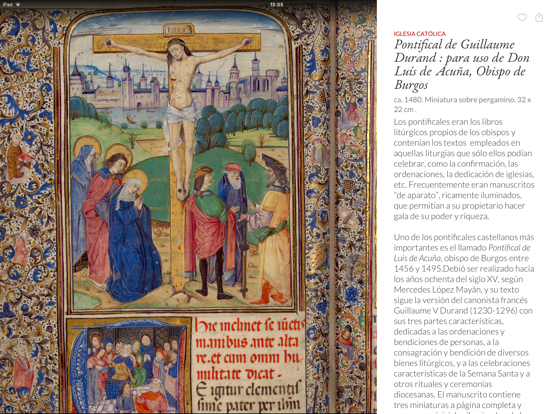 iPad
15:55
INRI
IGLESIA CATÓLICA
Pontifical de Guillaume
Durand : para uso de Don
Luis de Acuña, Obispo de
Burgos
ca. 1480. Miniatura sobre pergamino. 32 x
22 cm .
Los pontificales eran los libros
litúrgicos propios de los obispos y
contenían los textos empleados en
aquellas liturgias que sólo ellos podían
celebrar, como la confirmación, las
ordenaciones, la dedicación de iglesias,
etc. Frecuentemente eran manuscritos
"de aparato", ricamente iluminados,
que permitían a su propietario hacer
gala de su poder y riqueza.
Uno de los pontificales castellanos más
importantes es el llamado Pontifical de
Luis de Acuña, obispo de Burgos entre
1456 y 1495.Debió ser realizado hacia
los años ochenta del siglo XV, según
Mercedes López Mayán, y su texto
sigue la versión del canonista francés
Guillaume V Durand (1230-1296) con
sus tres partes características,
dedicadas a las ordenaciones y
bendiciones de personas, a la
consagración y bendición de diversos
bienes litúrgicos, y a las celebraciones
características de la Semana Santa y a
otros rituales y ceremonias
diocesanas. El manuscrito contiene
tres miniaturas a página completa y
Hic inclinet se iuctis
manibus ante alta
re. et cum omni hu
militate dicat.
E igitur clementis
sime pater per ihm